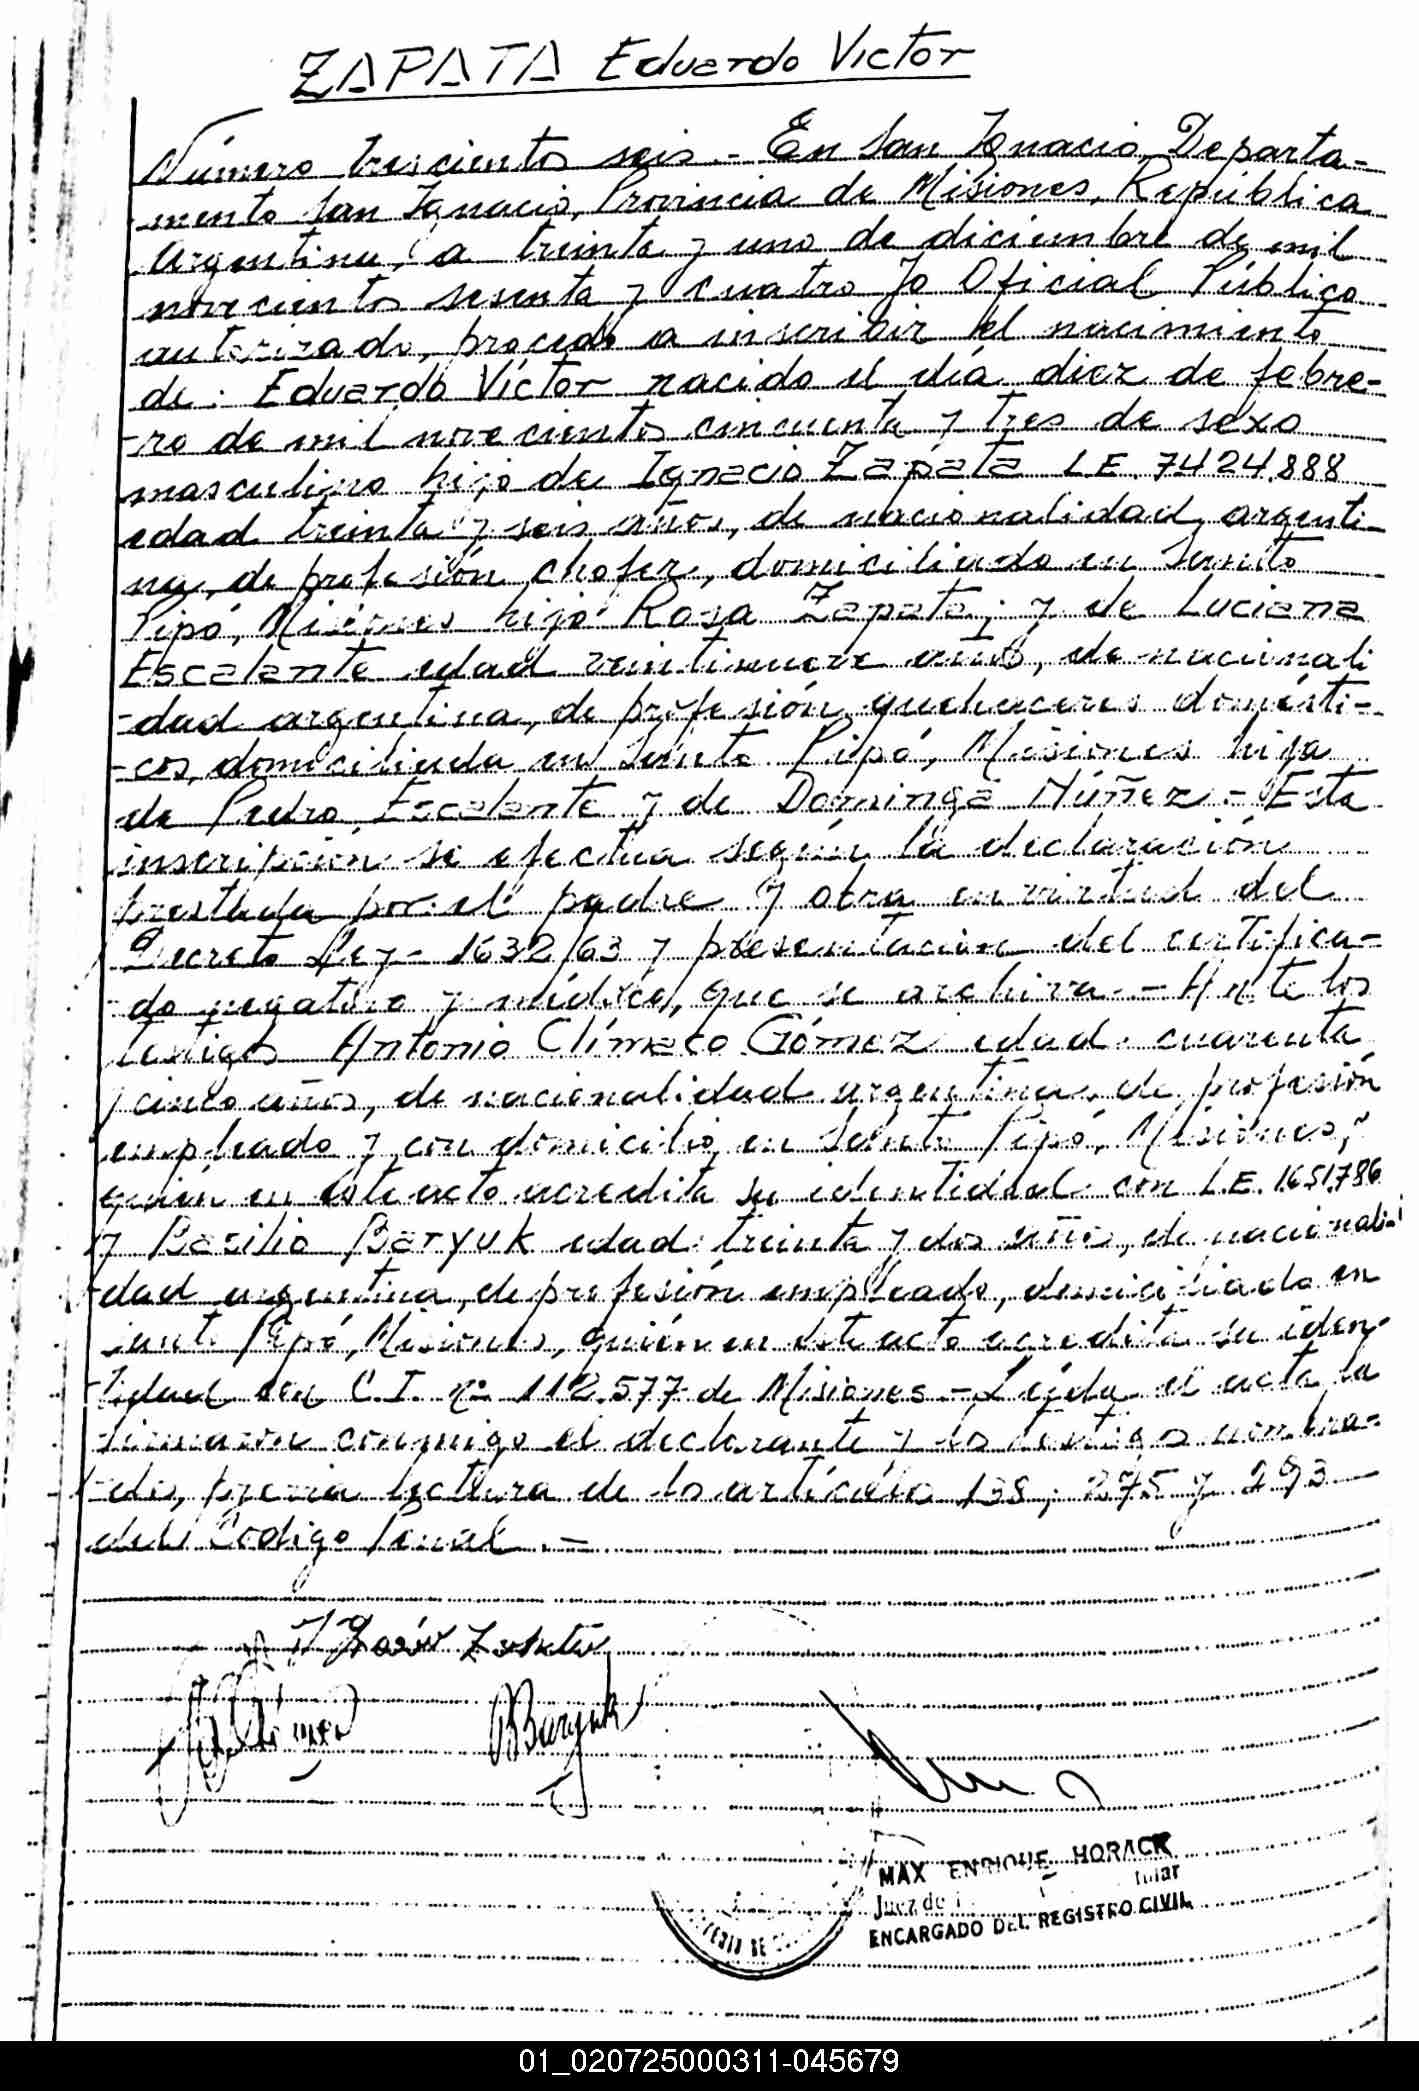 ZAPATA Eduardo Victor
Número trescientos seis.- En San Ignacio, Departa-
mento San Ignacio, Provincia de Misiones, República
Argentina, a treinta y uno de diciembre de mil
novecientos sesenta y cuatro Yo Oficial Público
autorizado, procedo a inscribir el nacimiento
de: Eduardo Víctor nacido el día diez de febre-
-ro de mil novecientos cincuenta y tres de sexo
masculino hijo de Ignacio Zapata L.E. 7424.888
edad treinta y seis años, de nacionalidad argenti-
na, de profesión chofer, domiciliado en Santo
Pipó, Misiones hijo Rosa Zapata; y de Luciana
Escalante edad veintinueve años, de nacionali
-dad argentina, de profesión quehaceres domésti-
-cos, domiciliada en Santo Pipó, Misiones hija
de Pedro Escalante y de Dominga Núñez.- Esta
inscripción se efectua según la declaración
prestada por el padre y obra en virtud del
Decreto Ley- 1632/63 y presentación del certifica-
-do negativo y médico, que se archiva.- Ante los
testigos Antonio Clímaco Gómez edad cuarenta
y cinco años, de nacionalidad argentina, de profesión
empleado y con domicilio en Santo Pipó, Misiones,
quien en este acto acredita su identidad con L.E. 1651786
y Basilio Baryuk edad treinta y dos años, de nacionali-
-dad argentina, de profesión empleado, domiciliado en
Santo Pipó, Misiones, quién en este acto acredita su iden-
-tidad con C.I. nº 112.577 de Misiones - Leída el acta la
firmaron conmigo el declarante y los testigos nombra-
-dos, previa lectura de los artículos 138, 275 y 293
del Codigo Penal.-
Baryuk
MAX ENRIQUE HORACK
Juez de
ENCARGADO DEL REGISTRO CIVIL
01_020725000311-045679